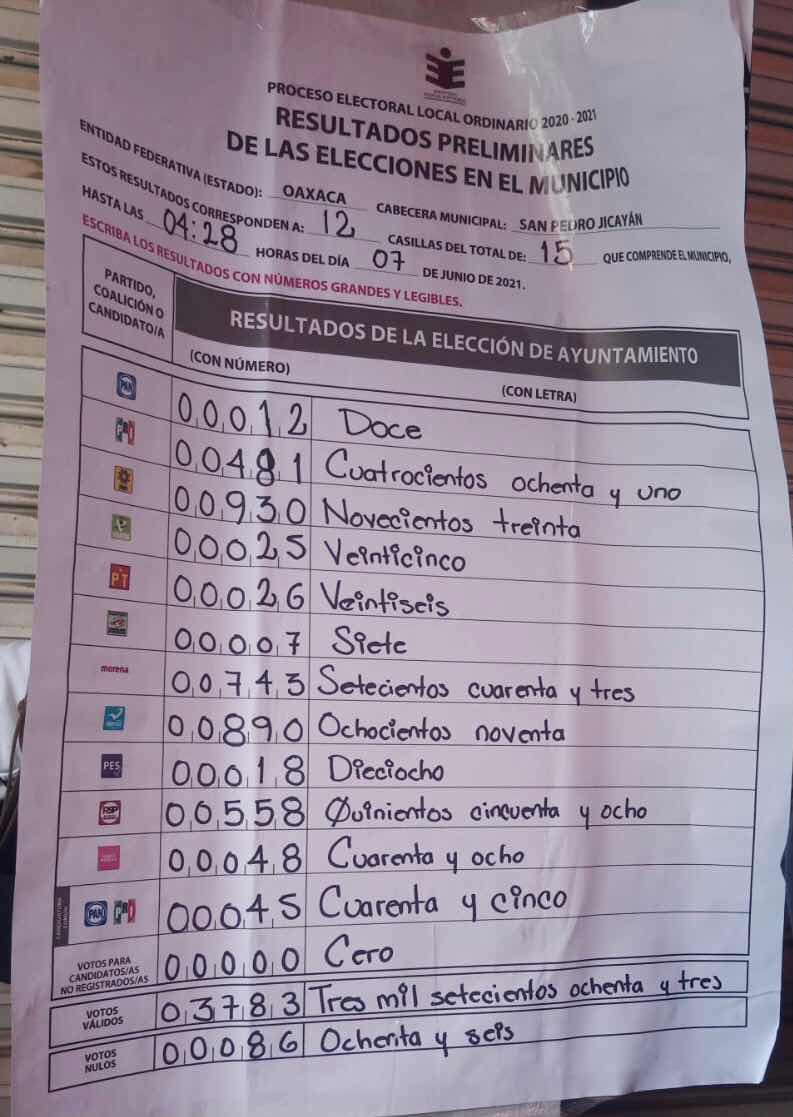 PROCESO ELECTORAL LOCAL ORDINARIO 2020 - 2021
RESULTADOS PRELIMINARES
DE LAS ELECCIONES EN EL MUNICIPIO
ENTIDAD FEDERATIVA (ESTADO): OAXACA CABECERA MUNICIPAL: SAN PEDRO JICAYÁN
ESTOS RESULTADOS CORRESPONDEN A: 12 CASILLAS DEL TOTAL DE: 15 QUE COMPRENDE EL MUNICIPIO,
HASTA LAS 04:28 HORAS DEL DÍA 07 DE JUNIO DE 2021.
ESCRIBA LOS RESULTADOS CON NÚMEROS GRANDES Y LEGIBLES.
PARTIDO, COALICIÓN O CANDIDATO/A
RESULTADOS DE LA ELECCIÓN DE AYUNTAMIENTO
(CON NÚMERO) (CON LETRA)
PAN 00012 Doce
PRI 00481 Cuatrocientos ochenta y uno
00930 Novecientos treinta
00025 Veinticinco
PT 00026 Veintiseis
00007 Siete
morena 00743 Setecientos cuarenta y tres
00890 Ochocientos noventa
PES 00018 Dieciocho
RSP 00558 Quinientos cincuenta y ocho
00048 Cuarenta y ocho
PAN PRI 00045 Cuarenta y cinco
VOTOS PARA CANDIDATOS/AS NO REGISTRADOS/AS 00000 Cero
VOTOS VÁLIDOS 03783 Tres mil setecientos ochenta y tres
VOTOS NULOS 00086 Ochenta y seis